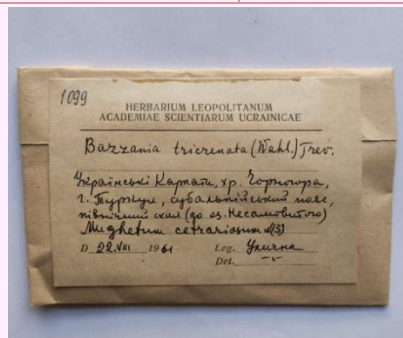 1099
HERBARIUM LEOPOLITANUM
ACADEMIAE SCIENTIARUM UCRAINICAE
Bazzania tricrenata (Wahl.) Trev.
Українські Карпати, хр. Чорногора,
г. Туркул, субальпійський пояс,
північний схил (до оз. Несамовитого)
Mughetum cetrariosum
D 22.VIII 1961 Leg. Улична
Det. –"–